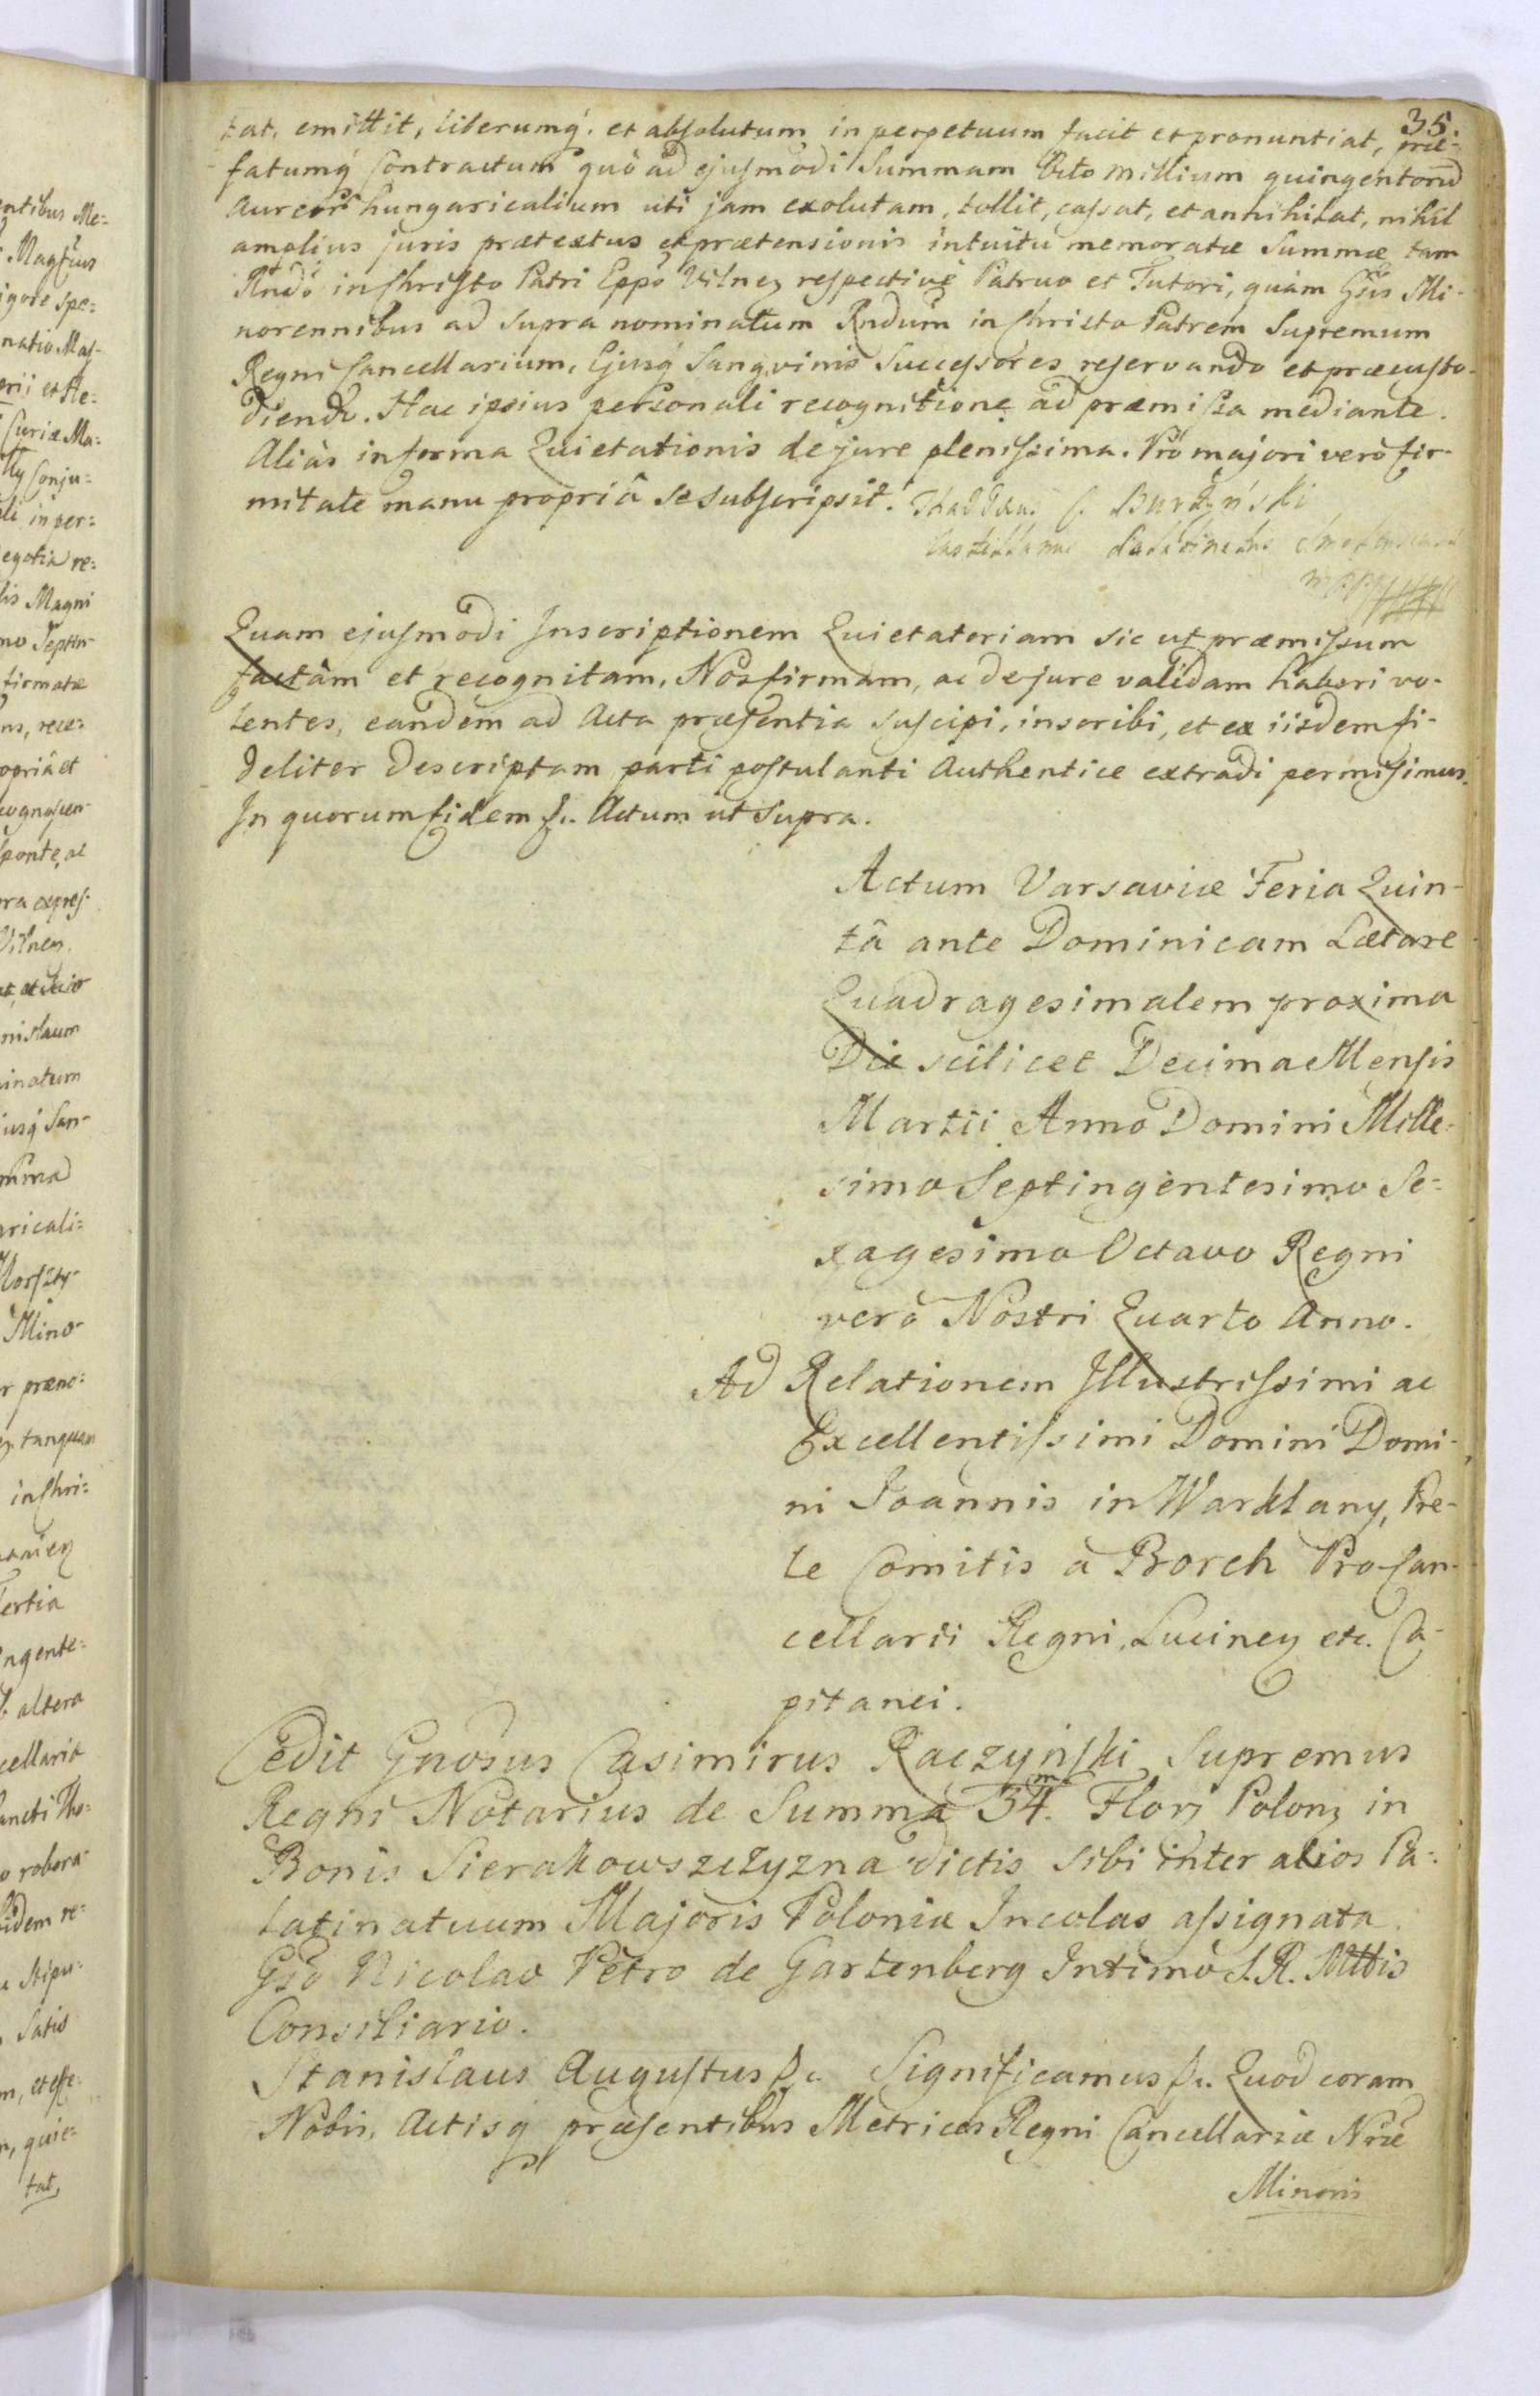 35.
tat, emittit, liberumq́. et absolutum in perpetuum facit et pronuntiat, præ-
fatumq́ Contractum quò ad ejusmodi Summam Octo millium quingentorũ
Aureorũ hungaricalium uti jam exolutam, tollit, cassat, et annihilat, nihil
amplius juris prætextus et prætensionis intuitu memoratæ Summæ tam
Rndo in Christo Patri Eppo Vilnen respectivè Patruo et Tutori, quàm Gsis Mi-
norennibus ad supra nominatum Rndum in Christo Patrem Supremum
Regni Cancellarium, Ejusq́ Sangvinis Successores reservando et præcusto-
diendo. Hac ipsius personali recognitione ad præmissa mediante.
Aliàs in forma Quietationis de jure plenissima. Pro majori verò fir-
mitate manu propriâ se subscripsit. Thaddæus C. Burzyński
Castellanus Palatinatus Smolenscensis
mpp
Quam ejusmodi Inscriptionem Quietatoriam sic ut præmissum
factam et recognitam, Nos firmam, ac de jure validam haberi vo-
lentes, eandem ad Acta præsentia suscipi, inscribi, et ex iisdem fi-
deliter descriptam parti postulanti Authentice extradi permisimus.
In quorum fidem &c. Actum ut supra.
Actum Varsaviæ Feria Quin-
tâ ante Dominicam Lætare
Quadragesimalem proxima
Die scilicet Decima Mensis
Martii Anno Domini Mille-
simo Septingentesimo Se-
xagesimo Octavo Regni
verò Nostri Quarto Anno.
Ad Relationem Illustrissimi ac
Excellentissimi Domini Domi-
ni Joannis in Warklany, Pre-
le Comitis à Borch ProCan-
cellarii Regni, Lucinen etc. Ca-
pitanei.
Cedit Gnosus Casimirus Raczyński Supremus
Regni Notarius de Summa 34.m Flor Polon in
Bonis Sierakowszczyzna dictis sibi inter alios Pa-
latinatuum Majoris Poloniæ Incolas assignata
Gso Nicolao Petro de Gartenberg Intimo S. R. Mttis
Consiliario.
Stanislaus Augustus &c. Significamus &c. Quod coram
Nobis, Actisq́ præsentibus Metrices Regni Cancellariæ Nræ
Minoris